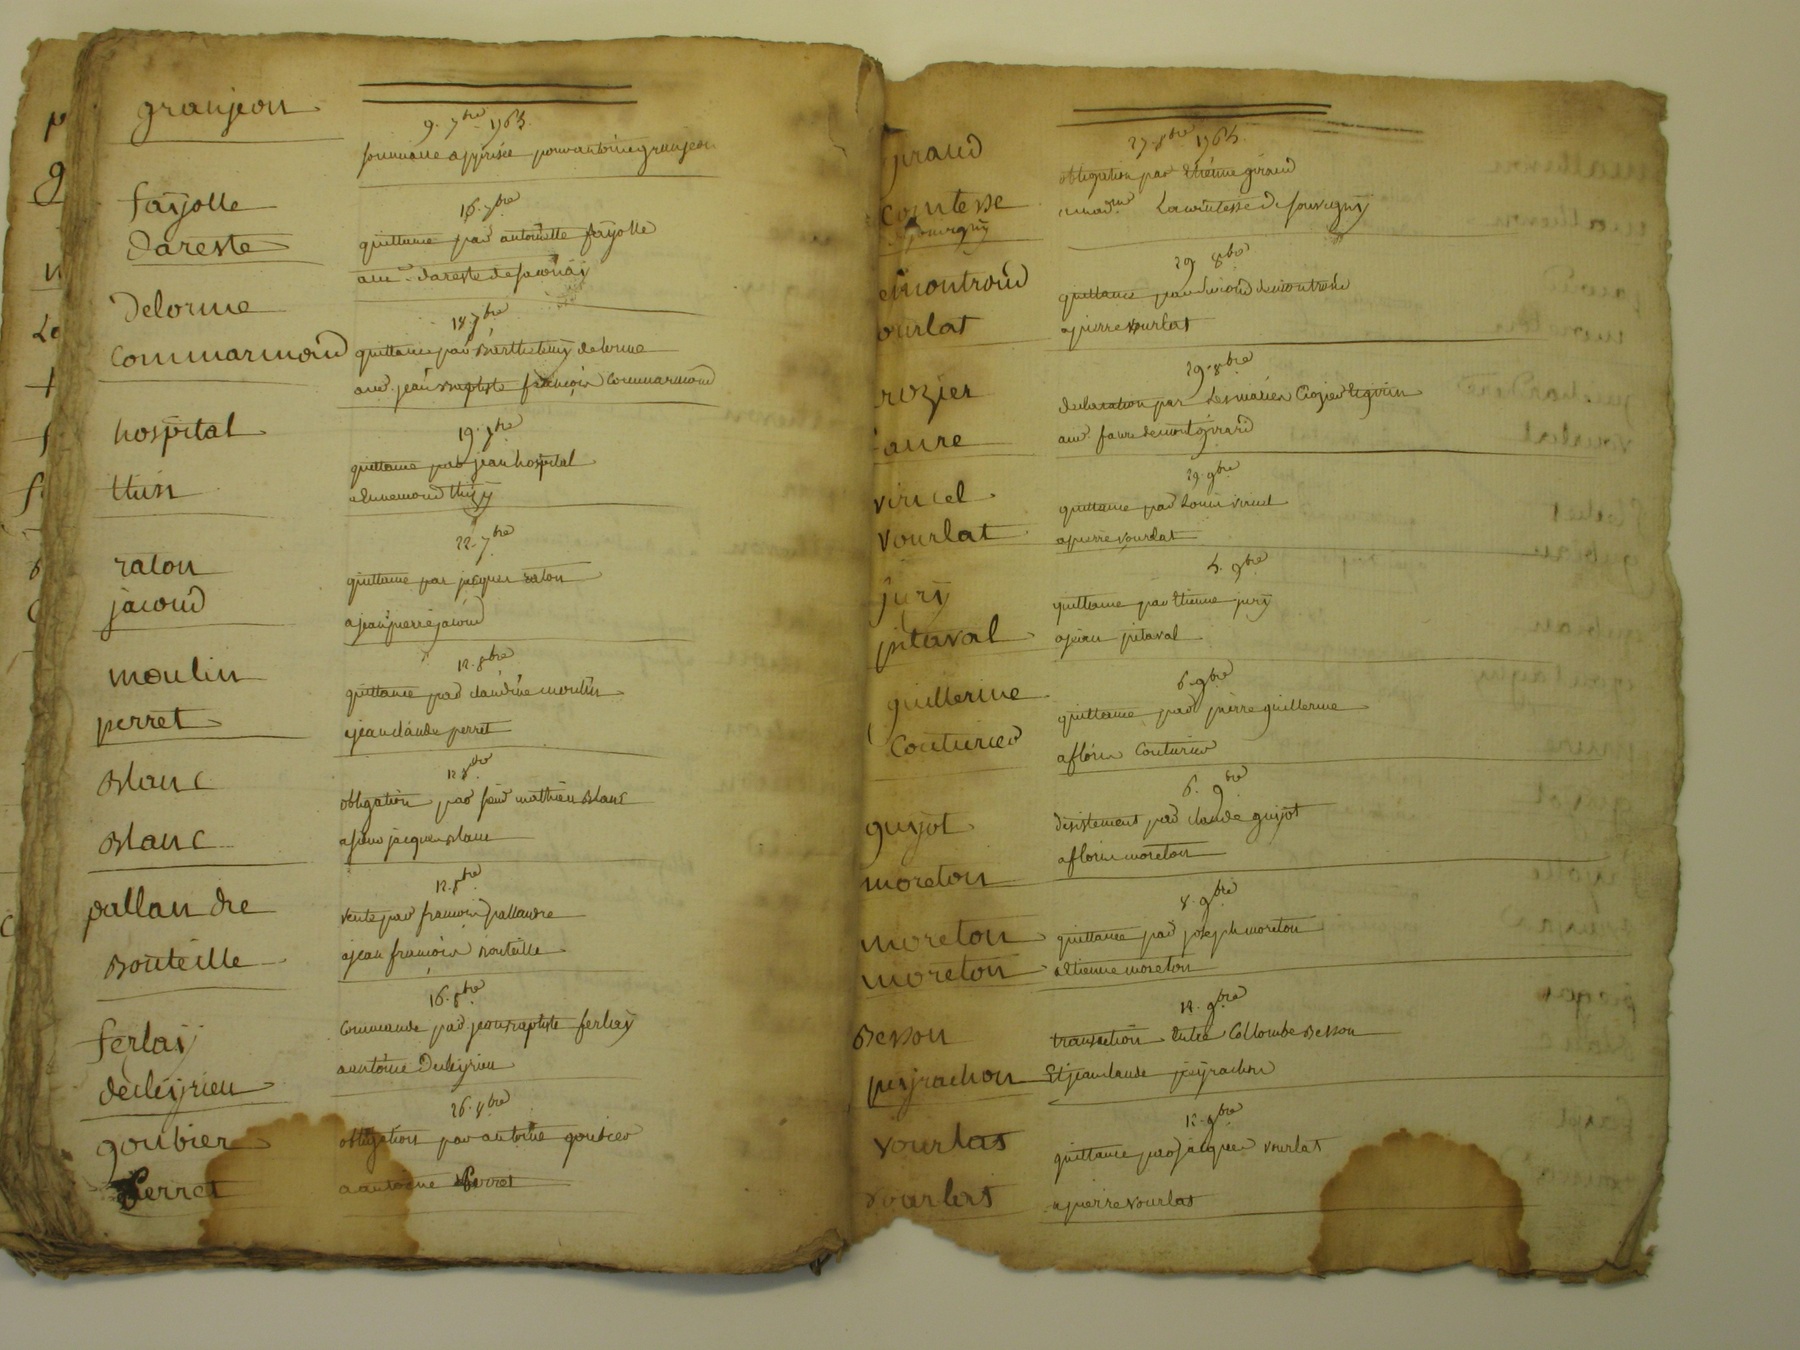 granjeon
9. 7bre 1765.
sommaire apprisée pour antoine granjeon
fayolle
dareste
16. 7bre
quittance par antoinette fayolle
a mr. dareste de saconay
delorme
Commarmond
18. 7bre
quittance par Barthelemy delorme
a mr. jean Baptiste françois Commarmond
hospital
thisy
19. 7bre
quittance par jean hospital
a ennemond thizy
raton
jacoud
22. 7bre
quittance par jacques raton
a jean pierre jacoud
moulin
perret
12. 8bre
quittance par claudine moulin
a jean claude perret
Blanc
Blanc
12 8bre
obligation par sieur mathieu Blanc
a sieur jacques Blanc
pallandre
Bouteille
12. 8bre
vente par françois pallandre
a jean françois Bouteille
ferlay
decleyrieu
16. 8bre
Commande par jean Baptiste ferlay
a antoine Decleyrieu
goubier
ferret
26. 8bre
obligation par antoine goubier
a antoine ferret
giraud
Comtesse
de souvigny
27. 8bre 1765.
obligation par Etienne giraud
a mad.me La comtesse de souvigny
emontrond
ourlat
29. 8bre
quittance par demontrond
a pierre vourlat
rozier
faure
29. 8bre
declaration par Crozier
a mr. faure de montgirard
viricel
vourlat
29. 9bre
quittance par Louis viricel
a pierre vourlat
jury
pitaval
5. 9bre
quittance par Etienne jury
a jean pitaval
guillerme
Couturier
6. 9bre
quittance par pierre guillerme
a florin Couturier
guyot
moreton
6. 9bre
desistement par claude guyot
a florin moreton
moreton
moreton
8. 9bre
quittance par joseph moreton
a Etienne moreton
Besson
peyrachon
12. 9bre
transaction Entre Collombe Besson
Et jean claude peyrachon
vourlas
vourlas
12. 9bre
quittance par jacques vourlat
a pierre vourlas